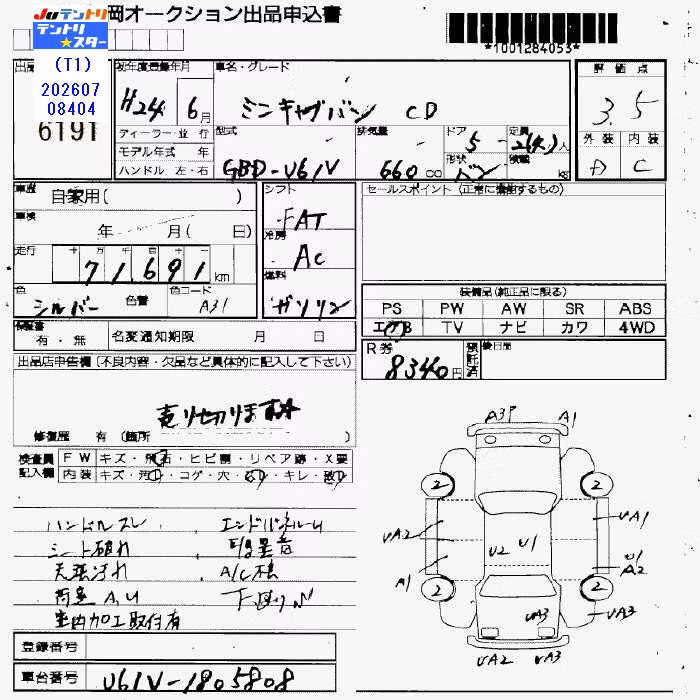 JUテントリ
テントリ★スター
岡オークション出品申込書
*1001284053*
(T1)
202607
08404
6191
初年度登録年月
H24 6月
ディーラー・並行
モデル年式 年
ハンドル 左・右
車名・グレード
ミニキャブバン CD
型式
GBD-U61V
排気量
660 cc
ドア
5
形状
バン
定員
2(4)人
積載
kg
評価点
3.5
外装 内装
D C
車歴
自家用( )
車検
年 月( 日)
走行
十 万 千 百 十 一
71691 km
色
シルバー
色替
色コード
A31
シフト
FAT
冷房
AC
燃料
ガソリン
セールスポイント(正常に機能するもの)
装備品(純正品に限る)
PS PW AW SR ABS
エアB TV ナビ カワ 4WD
保証書
有・無
名変通知期限 月 日
R券
8340円
預託済
後日品
出品店申告欄(不良内容・欠品など具体的に記入して下さい)
売り切ります
修復歴 有(箇所
検査員記入欄
FW キズ・飛石・ヒビ割・リペア跡・X要
内装 キズ・汚・コゲ・穴・・キレ・
ハンドルスレ
エンドパネルーム
シート破れ
異音
天張汚れ
A/C
荷室A,U
下回りサビ
室内加工取付有
A3P A1
2 2
UA2 UA1
U2 U1
U1
A1 A2
2 2
UA3 UA3
UA2 UA3
登録番号
車台番号
U61V-1805808